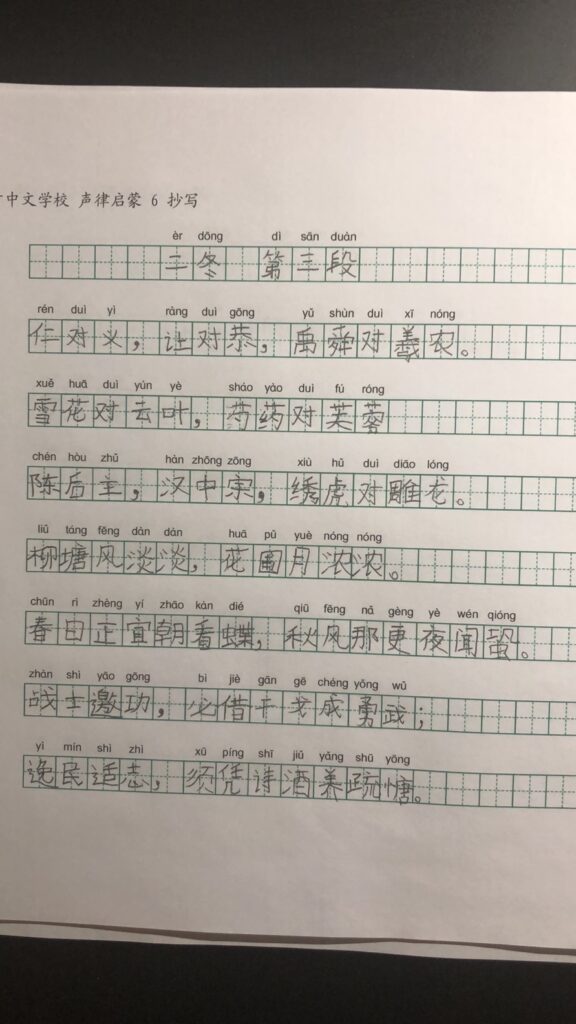 中文学校 声律启蒙 6 抄写
èr dōng dì sān duàn
二冬 第三段
rén duì yì ràng duì gōng yǔ shùn duì xī nóng
仁对义，让对恭，禹舜对羲农。
xuě huā duì yún yè sháo yào duì fú róng
雪花对云叶，芍药对芙蓉
chén hòu zhǔ hàn zhōng zōng xiù hǔ duì diāo lóng
陈后主，汉中宗，绣虎对雕龙。
liǔ táng fēng dàn dàn huā pǔ yuè nóng nóng
柳塘风淡淡，花圃月浓浓。
chūn rì zhèng yí zhāo kàn dié qiū fēng nǎ gèng yè wén qióng
春日正宜朝看蝶，秋风那更夜闻蛩。
zhàn shì yāo gōng bì jiè gān gē chéng yǒng wǔ
战士邀功，必借干戈成勇武；
yì mín shì zhì xū píng shī jiǔ yǎng shū yōng
逸民适志，须凭诗酒养疏慵。